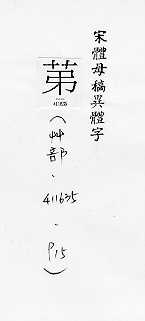 宋體母稿異體字
苐
411635
(艸部.411635.P15)